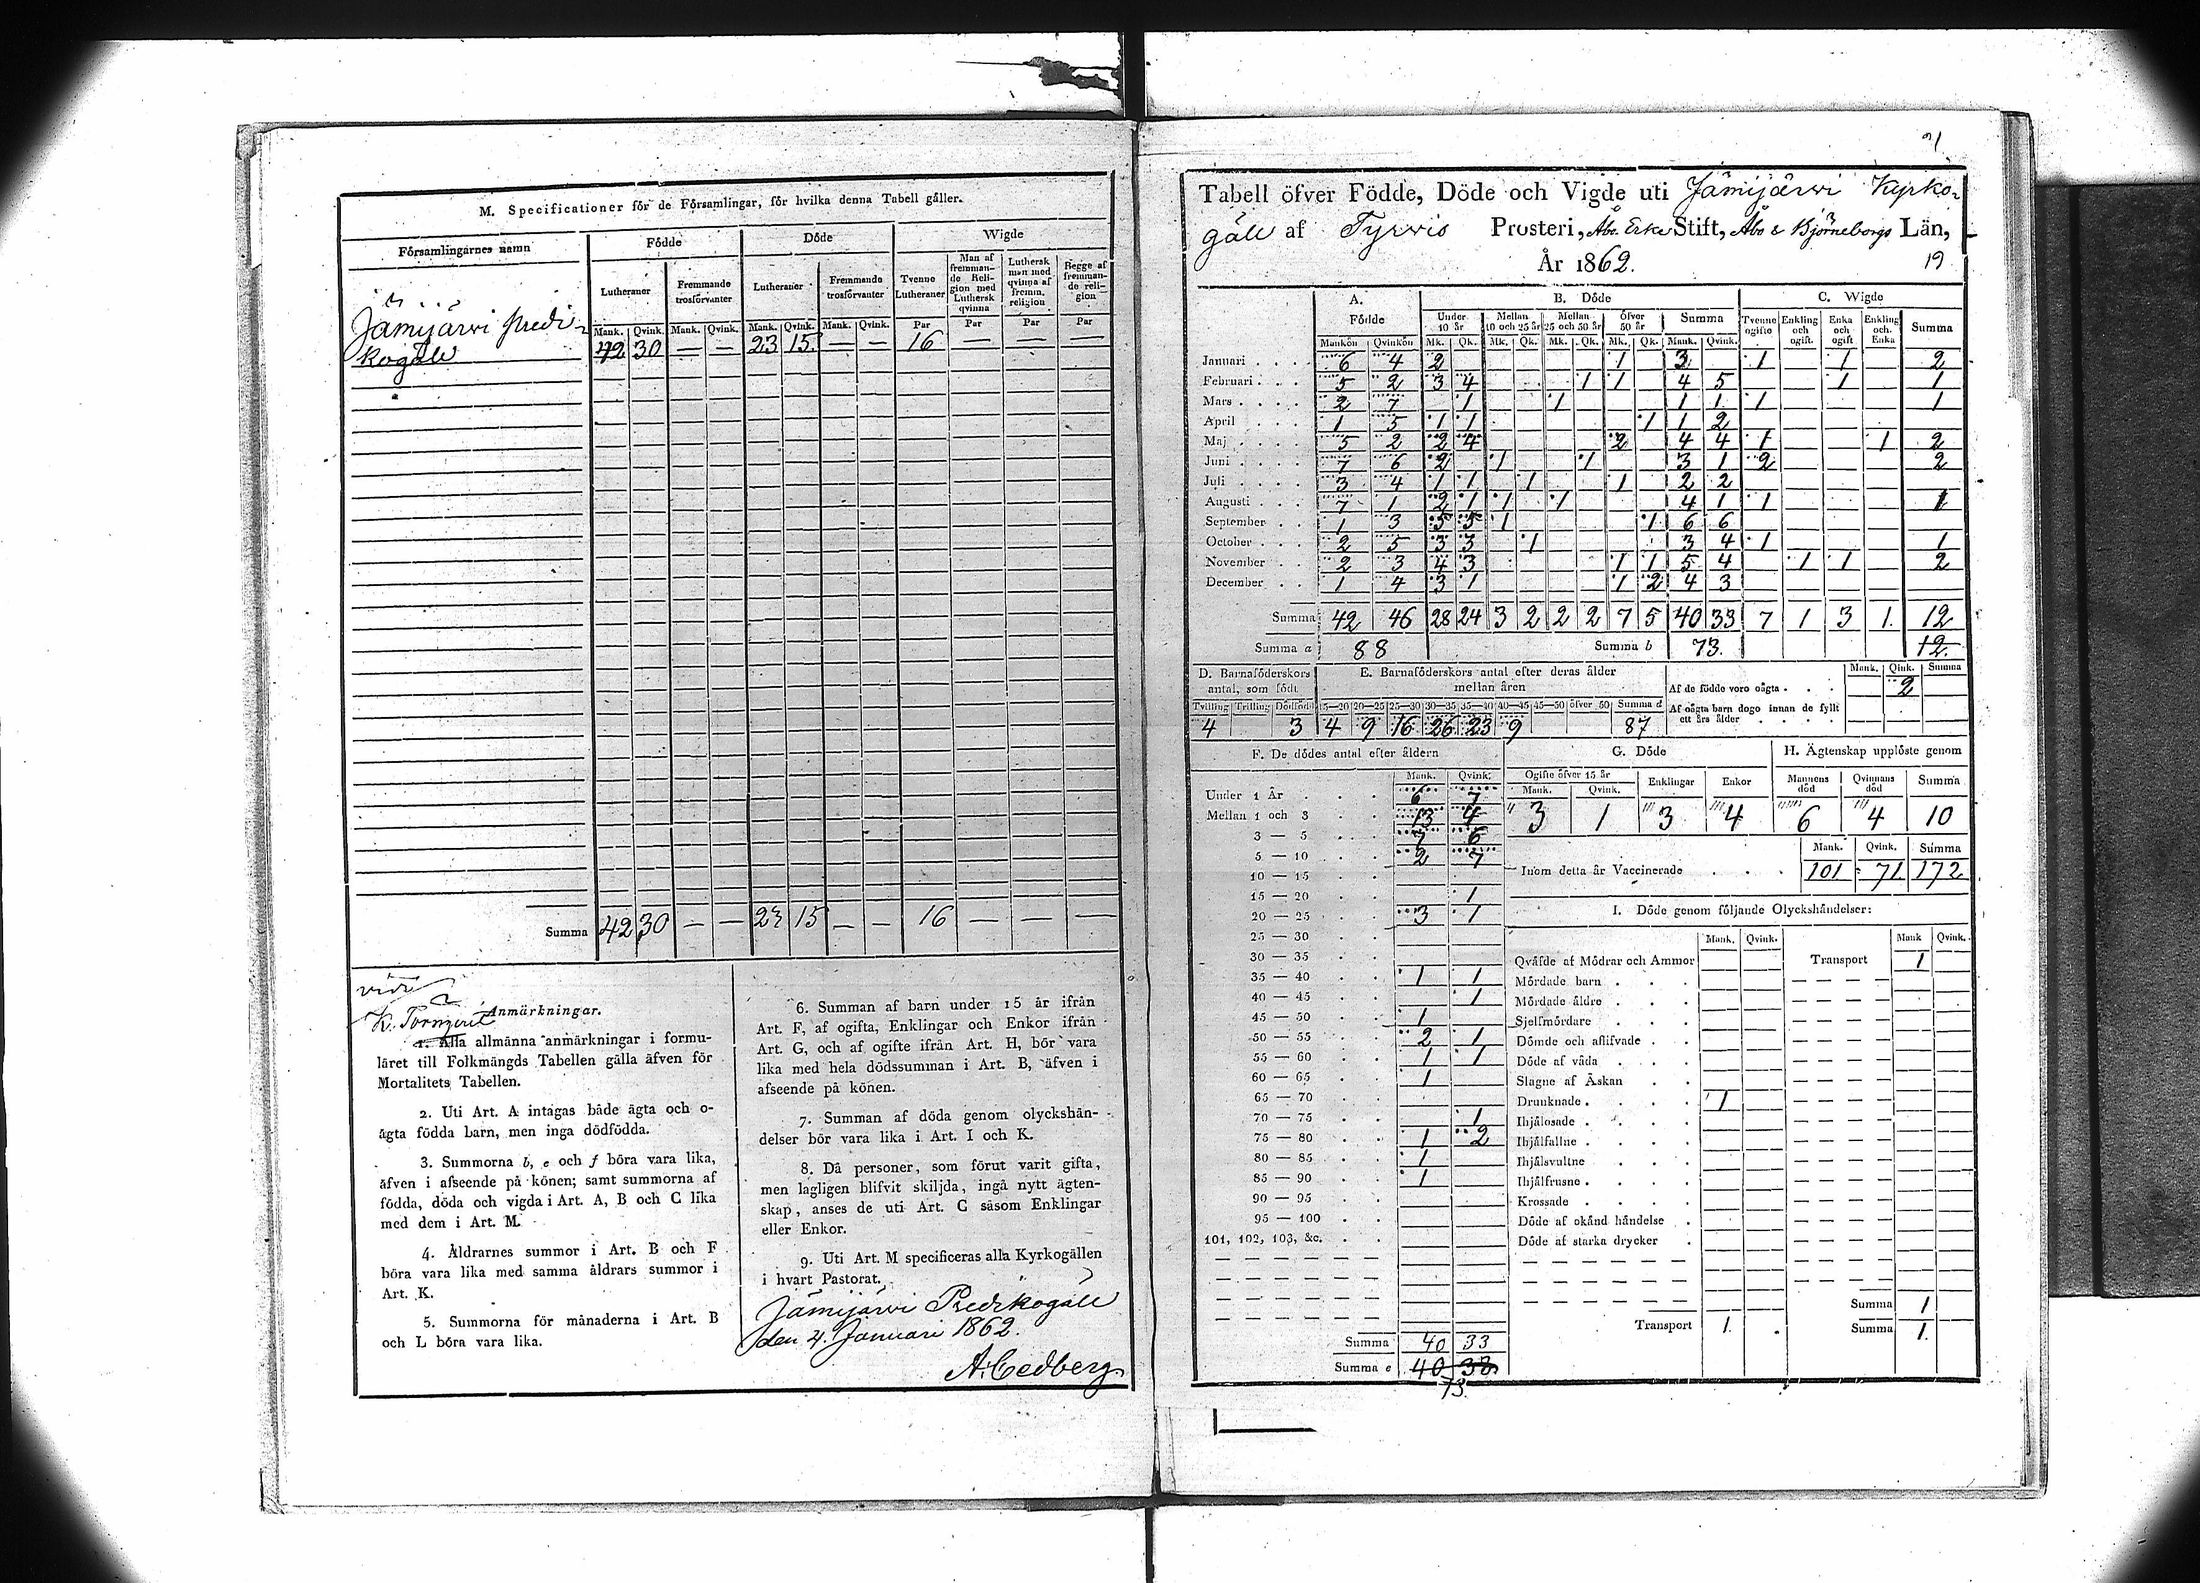 M. Specificationer för de Församlingar, för hvilka denna Tabell gäller.
Församlingarnes namn Födde Döde Wigde
Lutheraner Fremmande trosförvanter Lutheraner Fremmande trosförvanter Tvenne Lutheraner Man af fremmande Religion med Luthersk qvinna Luthersk man med qvinna af fremm. religion Begge af fremmande religion
Mank. Qvink. Mank. Qvink. Mank. Qvink. Mank. Qvink. Par Par Par Par
Jämijärwi predi-
kogäll 42 30 — — 23 15 — — 16 — — —
Summa 42 30 — — 23 15 — — 16 — — —
Anmärkningar.
1. Alla allmänna anmärkningar i formu-
läret till Folkmängds Tabellen gälla äfven för
Mortalitets Tabellen.
2. Uti Art. A intagas både ägta och o-
ägta födda barn, men inga dödfödda.
3. Summorna b, e och f böra vara lika,
äfven i afseende på könen; samt summorna af
födda, döda och vigda i Art. A, B och C lika
med dem i Art. M.
4. Åldrarnes summor i Art. B och F
böra vara lika med samma åldrars summor i
Art. K.
5. Summorna för månaderna i Art. B
och L böra vara lika.
6. Summan af barn under 15 år ifrån
Art. F, af ogifta, Enklingar och Enkor ifrån
Art. G, och af ogifte ifrån Art. H, bör vara
lika med hela dödssumman i Art. B, äfven i
afseende på könen.
7. Summan af döda genom olyckshän-
delser bör vara lika i Art. I och K.
8. Då personer, som förut varit gifta,
men lagligen blifvit skiljda, ingå nytt ägten-
skap, anses de uti Art. C såsom Enklingar
eller Enkor.
9. Uti Art. M specificeras alla Kyrkogällen
i hvart Pastorat.
Jämijärwi Predikogäll
den 4. Januari 1862.
A. Cedberg
Tabell öfver Födde, Döde och Vigde uti Jämijärwi Kyrko-
gäll af Tyrvis Prosteri, Åbo Erke Stift, Åbo & Björneborgs Län,
År 1862. 19
A. B. Döde C. Wigde
Födde Under 10 år Mellan 10 och 25 år Mellan 25 och 50 år öfver 50 år Summa Tvenne ogifte Enkling och ogift. Enka och ogift Enkling och Enka Summa
Mankön Qvinkön Mk. Qk. Mk. Qk. Mk. Qk. Mk. Qk. Mank. Qvink.
Januari 6 4 2 1 3 1 1 2
Februari 5 2 3 4 1 1 4 5 1 1
Mars 2 7 1 1 1 1 1 1
April 1 5 1 1 1 1 2
Maj 5 2 2 4 2 4 4 1 1 2
Juni 7 6 2 1 1 3 1 2 2
Juli 3 4 1 1 1 1 2 2
Augusti 7 1 2 1 1 1 4 1 1 1
September 1 3 5 5 1 1 6 6
October 2 5 3 3 1 3 4 1 1
November 2 3 4 3 1 1 5 4 1 1 2
December 1 4 3 1 1 2 4 3
Summa 42 46 28 24 3 2 2 2 7 5 40 33 7 1 3 1. 12
Summa a 88 Summa b 73. 12.
D. Barnaföderskors antal, som födt
Tvilling Trilling Dödfödt
4 3
E. Barnaföderskors antal efter deras ålder
mellan åren
15—20 20—25 25—30 30—35 35—40 40—45 45—50 öfver 50 Summa d
4 9 16 26 23 9 87
Mank. Qink. Summa
Af de födde voro oägta 2
Af oägta barn dogo innan de fyllt
ett års ålder
F. De dödes antal efter åldern
Mank. Qvink.
Under 1 År 6 7
Mellan 1 och 3 13 4
3 — 5 7 6
5 — 10 2 7
10 — 15
15 — 20 1
20 — 25 3 1
25 — 30
30 — 35
35 — 40 1 1
40 — 45 1
45 — 50 1
50 — 55 2 1
55 — 60 1 1
60 — 65 1
65 — 70
70 — 75 1
75 — 80 1 2
80 — 85 1
85 — 90 1
90 — 95
95 — 100
101, 102, 103, &c.
Summa 40 33
Summa e 40 38
73.
G. Döde
Ogifte öfver 15 år Enklingar Enkor
Mank. Qvink.
3 1 3 4
H. Ägtenskap upplöste genom
Mannens död Qvinnans död Summa
6 4 10
Mank. Qvink. Summa
Inom detta år Vaccinerade 101 71 172
I. Döde genom följande Olyckshändelser:
Mank. Qvink. Mank Qvink.
Qväfde af Mödrar och Ammor Transport 1
Mördade barn
Mördade äldre
Sjelfmördare
Dömde och aflifvade
Döde af våda
Slagne af Åskan
Drunknade 1
Ihjälosade
Ihjälfallne
Ihjälsvultne
Ihjälfrusne
Krossade
Döde af okänd händelse
Döde af starka drycker
Summa 1
Transport 1. Summa 1.